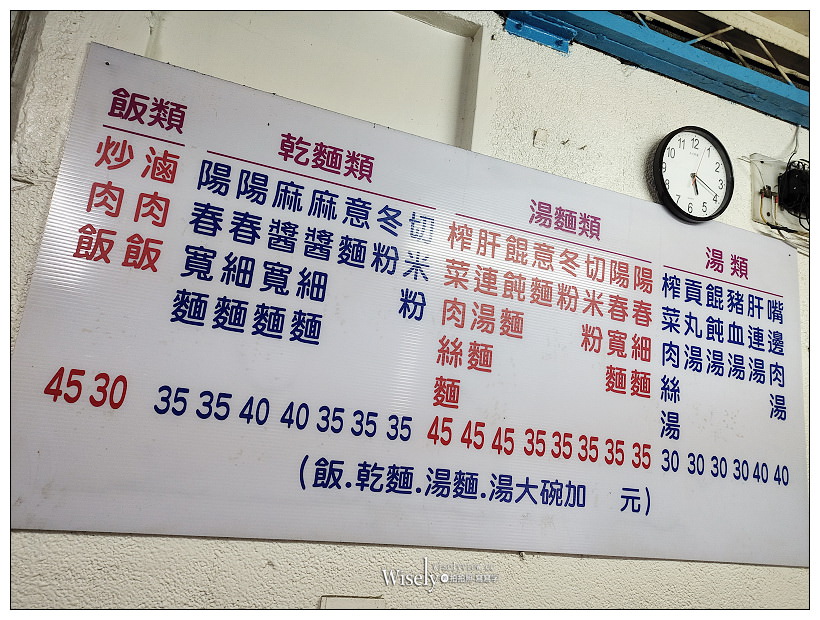 飯類
炒肉飯 45
滷肉飯 30
乾麵類
陽春寬麵 35
陽春細麵 35
麻醬寬麵 40
麻醬細麵 40
意麵 35
冬粉 35
切米粉 35
湯麵類
榨菜肉絲麵 45
肝連湯麵 45
餛飩麵 45
意麵 35
冬粉 35
切米粉 35
陽春寬麵 35
陽春細麵 35
湯類
榨菜肉絲湯 30
貢丸湯 30
餛飩湯 30
豬血湯 30
肝連湯 40
嘴邊肉湯 40
(飯.乾麵.湯麵.湯大碗加 元)
12
1
2
3
4
5
6
7
8
9
10
11
Wisely